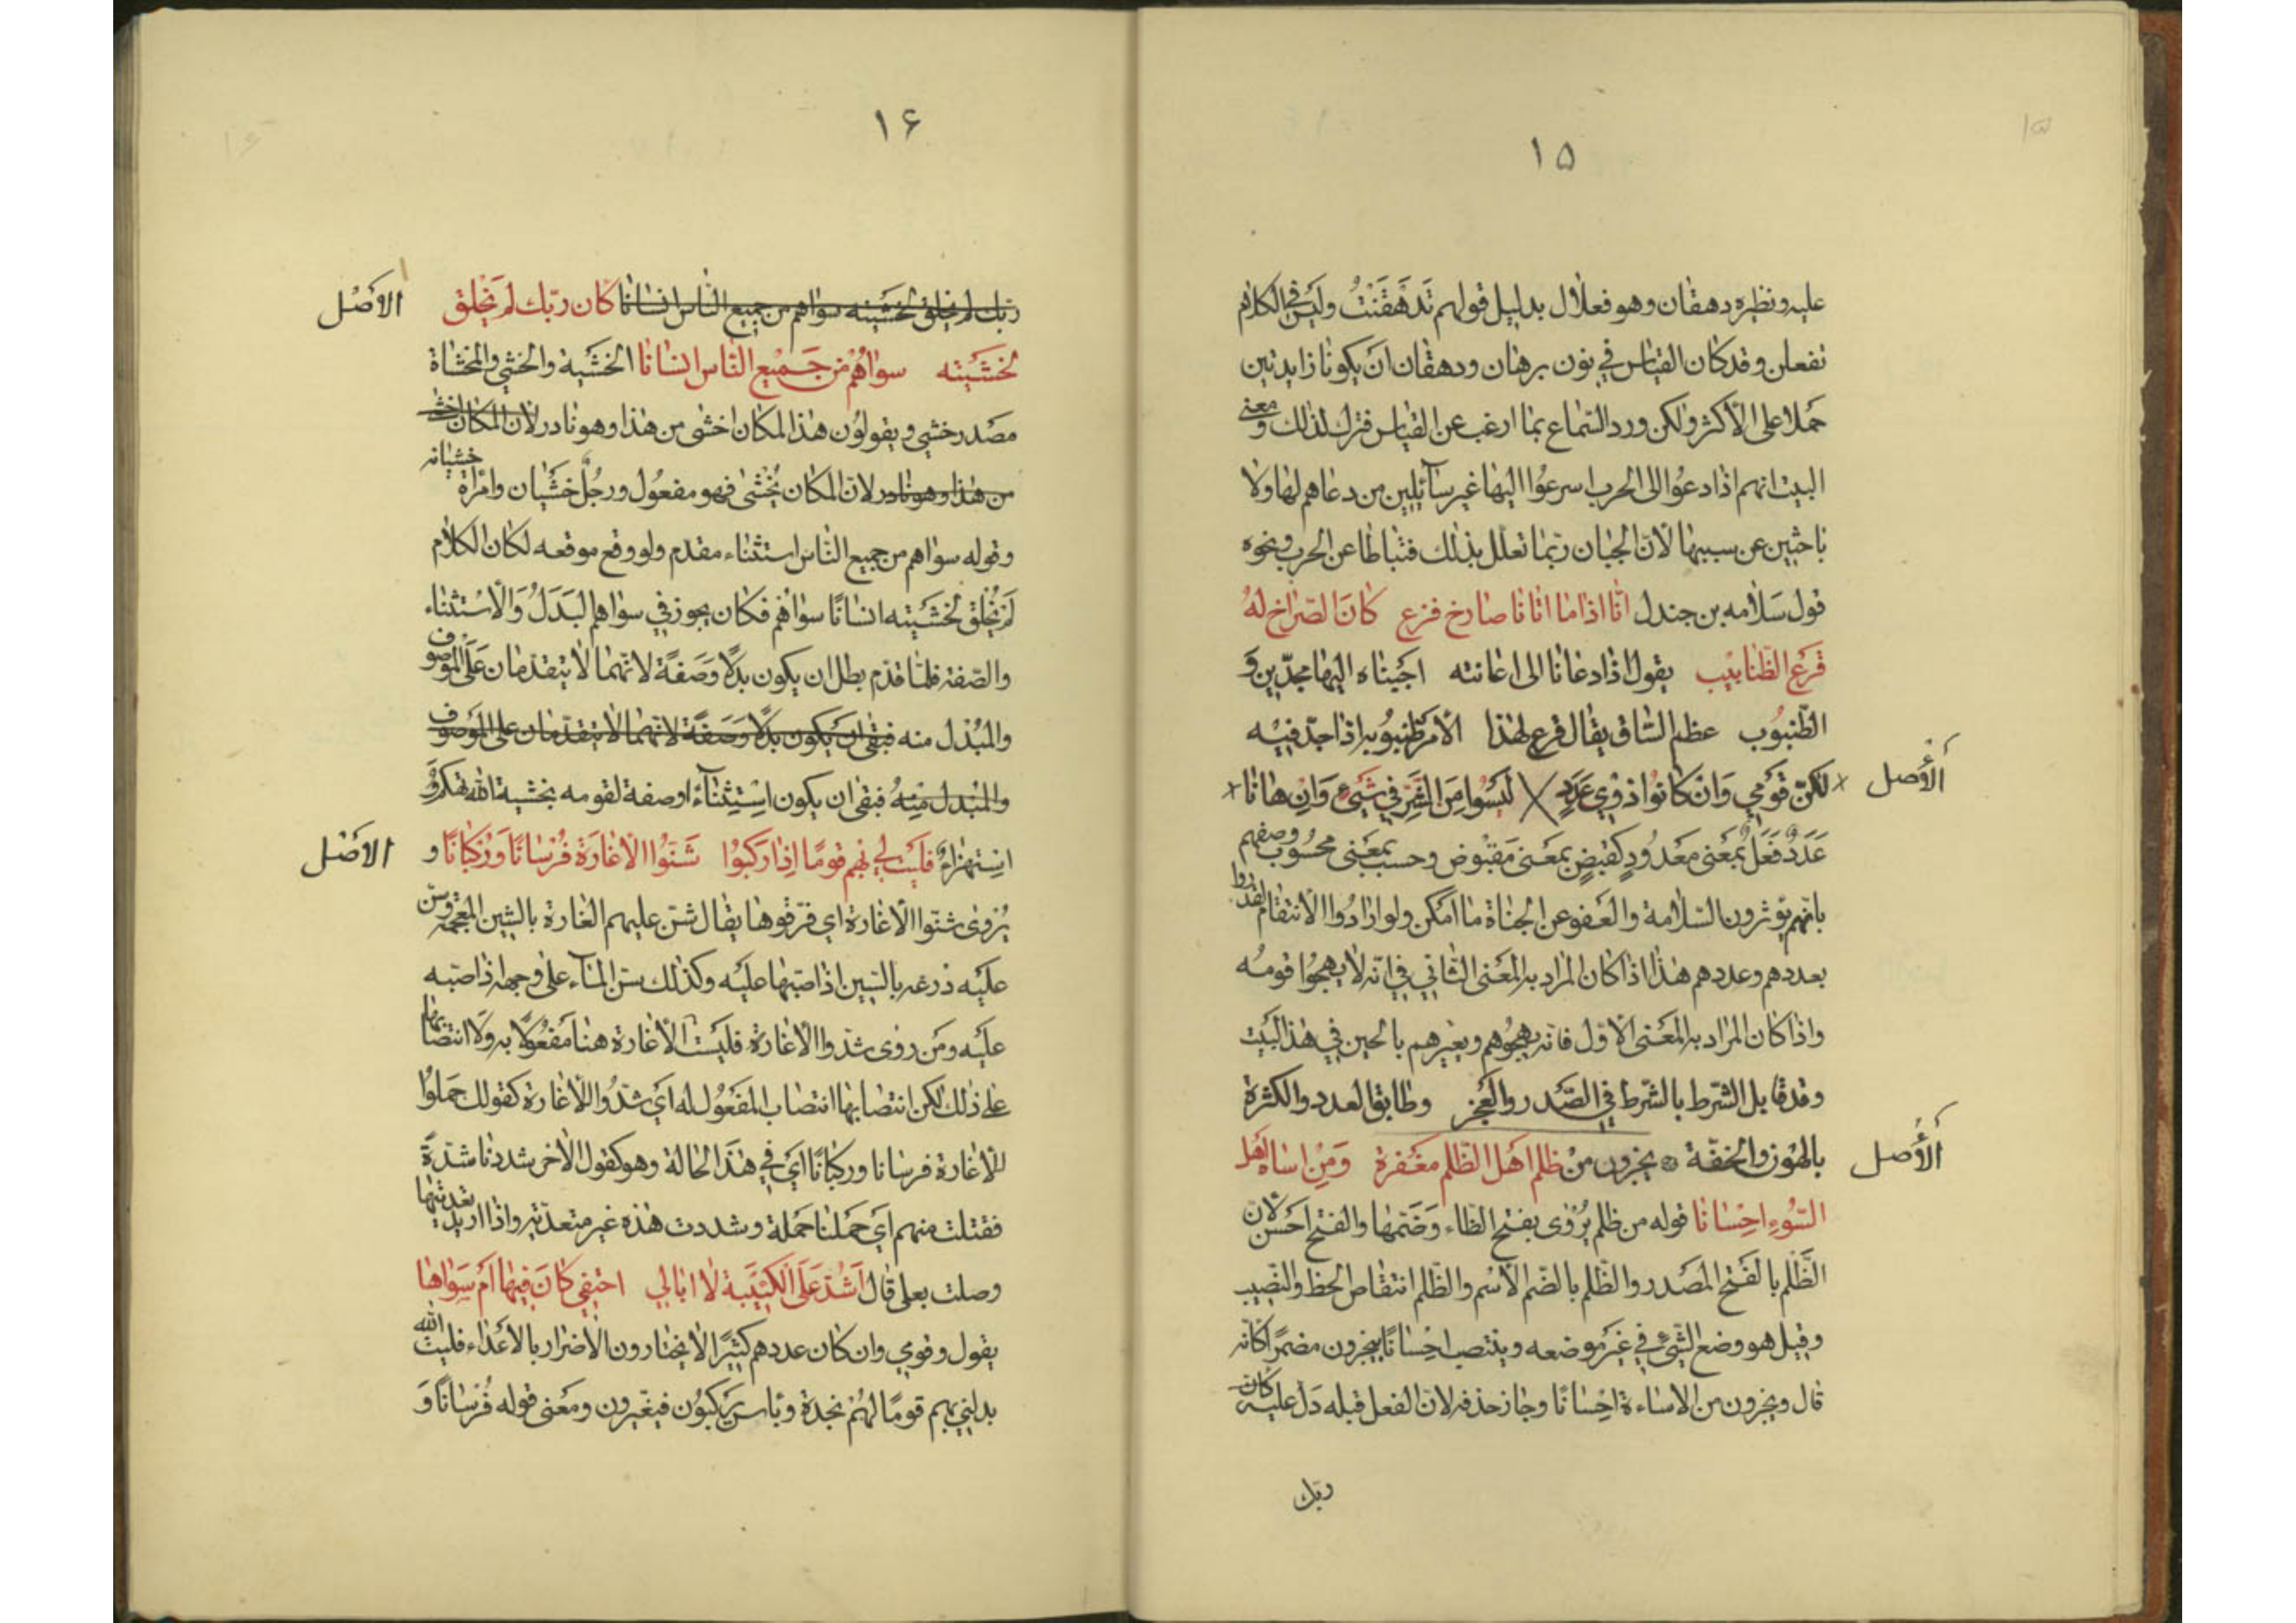 ١٥
عليه ونظيره دهقان وهو فعلال بدليل قولهم تَدَهْقَنْتُ وليس في الكلام
تفعلن وقد كان القياس في نون برهان ودهقان أن يكونا زايدتين
حملا على الأكثر ولكن ورد السماع بما ارغب عن القياس فترك لذلك ومعنى
البيت انهم اذا دعوا الى الحرب اسرعوا اليها غير سآئلين من دعاهم لها ولا
باحثين عن سببها لأنّ الجبان ربّما تعلّل بذلك فتباطا عن الحرب ونحوه
قول سَلامه بن جندل انّا اذا ما اتانا صارخ فزع كانَ الصّراخ لهُ
قرع الظّنابيْب يقول اذا دعانا الى اغاثته اجبناه اليها مجدّين و
الظّنبُوب عظم السّاق يقال قرع لهذا الأمر ظنبُوبه اذا جدّ فيه
الأصل
لكنّ قومي وَانْ كانُوا ذوِي عَدَدٍ لَيسُوا مِنَ الشَّرِّ في شَيْءٍ وَاِنْ هانا
عَدَد فَعَل بمَعنى معَدُودٍ كقبَضٍ بمعَنى مَقبُوض وحسب بمعَنى محسُوب وصفهم
بانّهم يؤثرون السّلامة والعَفو عن الجناة ما امكن ولو ارادُوا الأنتقام لقدروا
بعددهم وعددهم هذا اذا كان المراد به المعَنى الثّاني في انّه لا يهجُوا قومُه
واذا كان المرَاد به المعَنى الأوّل فانّه يهجُوهم ويعيّرهم بالجبن في هذا البَيت
وقد قابل الشّرط بالشّرط في الصّدر والعَجُز وطابق العدد والكثرة
الأصل
بالهَون والخفّة يجزون منْ ظلم اهَل الظّلم مغَفرة وَمِنْ اساءة اهَل
السُّوءِ احِسْانا قوله من ظلم يُرْوٰى بفتح الظاء وضَمّها والفتح احَسن لان
الظَّلم بالفَتح المصَدر والظّلم بالضّم الأسْم والظّلم انتقاص الحظ والنّصيب
وقيل هو وضع الشّيْءِ في غيَر موَضعه وينتصب احِسْانًا بيجزون مضمرًا كانّه
قال ويجزون من الاساءة احِسْانًا وجاز حذفه لانّ الفعل قبله دَلّ عليه كان
ربّك
١٦
ربّك لم يخلق لخشَيته سواهم من جميع النّاس انسانا كان ربّك لَمْ يَخْلق
الأصَل
لخَشَيْته سوٰاهُمْ منْ جَميْع النّاس انسَانا الخَشيَة والخشي والمخشاة
مصَدر خشي ويقولوُن هذا المكان اخشى من هذا وهو نادر لانّ المكان اخشى
من هذا وهو نادر لانّ المكان يُخْشٰى فهو مفعُول ورجُلٌ خَشْيان وامْرأة خشيانه
وقوله سوٰاهم من جميع النّاس استثناء مقدم ولو وقع موقعه لكان الكلام
لَمْ يَخْلق لخَشَيته انسْانًا سوٰاهُم فكان يجوز في سواهم البَدَلُ وَالأسْتثناء
والصّفة فلمّا قدّم بطل ان يكون بدَلًا وَصَفةً لانّهما لا يتقدّمان عَلَى الموَصُوف
والمبُدل منه فبقى انَ يكون بدَلًا وصَفةً لانّهما لا يتقدّمان على الموَصُوف
والمبُدل مِنْهُ فبقى ان يكون اسِتِثنآءً او صفة لقومه بخشية الله تهكمٌ وَ
اسِتهزاءٌ فليَت لِي بهِم قومًا اِذا رَكبُوا شَنّوُا الأغارَة فُرْسانًا وَرُكبانًا و
الأصَل
يُرْوٰى شنّوا الأغارة اي فرّقوها يقال شنّ عليهم الغارة بالشين المعجمة وسنّ
عليَه دْرعه بالسّين اذا صبّها عليَه وكذلك سنّ المآء على وجهه اذا صبّه
عليَه ومَن روٰى شدّوا الأغارة فليَست الأغارة هنا مَفعُولًا به وَلا انتصابها
على ذلك لكن انتصابها انتصاب المفعُول له اىَ شدُّوا للأغارة كقولك حَملوُا
للأغارة فرسانا وركبانًا اىَ في هذَا الحالة وهو كقول الأخر شددنا شدّةً
فقتلت منهم اىَ حَملنا حَملة وشددت هذه غير متعدّية واذا اريد تعديتها
وصلت بعلى قال اَشُدّ عَلَى الكَتيْبَة لا ابالي احتفي كانَ فيها امَ سِوَاها
يقول وقومي وان كان عددهم كثيرًا لا يختارون الأضرار بالأعَداء فليت الله
بدلني بهم قومًا لهُمْ نجدة وبأس يَركبُون فيغيرون ومعَنى قوله فُرْسانًا وَ